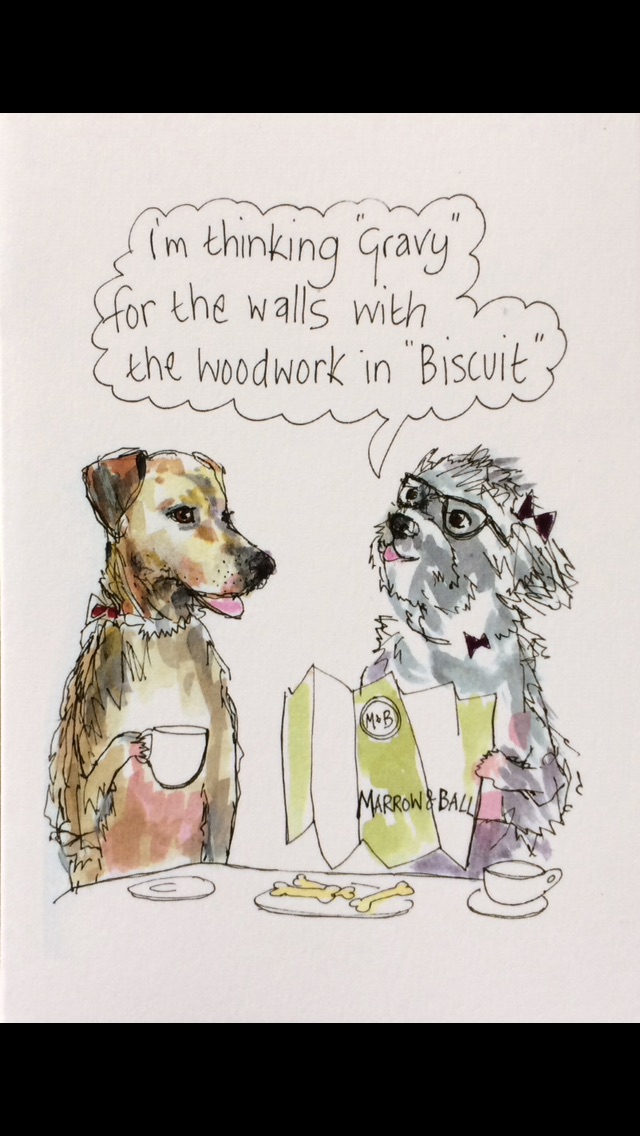 I'm thinking "Gravy"
for the walls with
the woodwork in "Biscuit"
M&B
MARROW & BALL